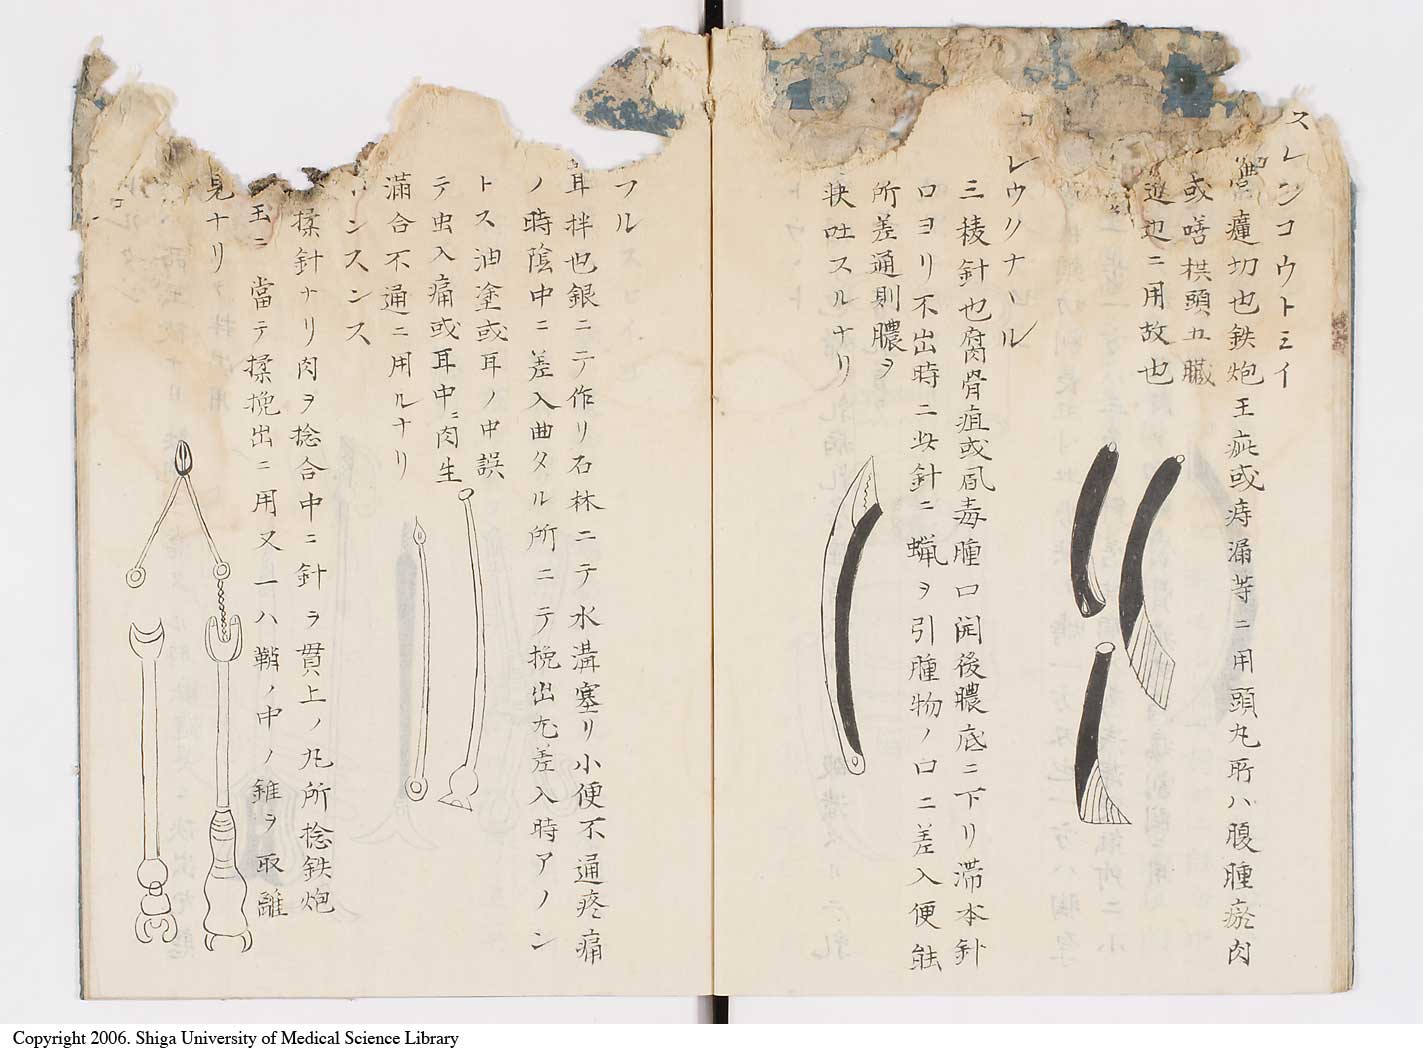 スレンコウトミイ
癰切也鉄炮玉疵或痔漏等ニ用頭丸所ハ腹腫瘀肉
或嗜栱頭五臓
近辺ニ用故也
コレウリナール
三稜針也腐骨疽或風毒腫口開後膿底ニ下リ滞本針
口ヨリ不出時ニ此針ニ蝋ヲ引腫物ノ口ニ差入便能
所差通則膿ヲ
挟吐スルナリ
フル
耳拌也銀ニテ作リ石林ニテ水溝塞リ小便不通疼痛
ノ時陰中ニ差入曲タル所ニテ挽出尤差入時アノン
トス油塗或耳ノ中誤
テ虫入痛或耳中ニ肉生
満合不通ニ用ルナリ
ンスンス
揉針ナリ肉ヲ捻合中ニ針ヲ貫上ノ丸所捻鉄炮
玉ニ當テ揉挽出ニ用又一ハ鞘ノ中ノ錐ヲ取離
見ナリ
Copyright 2006. Shiga University of Medical Science Library